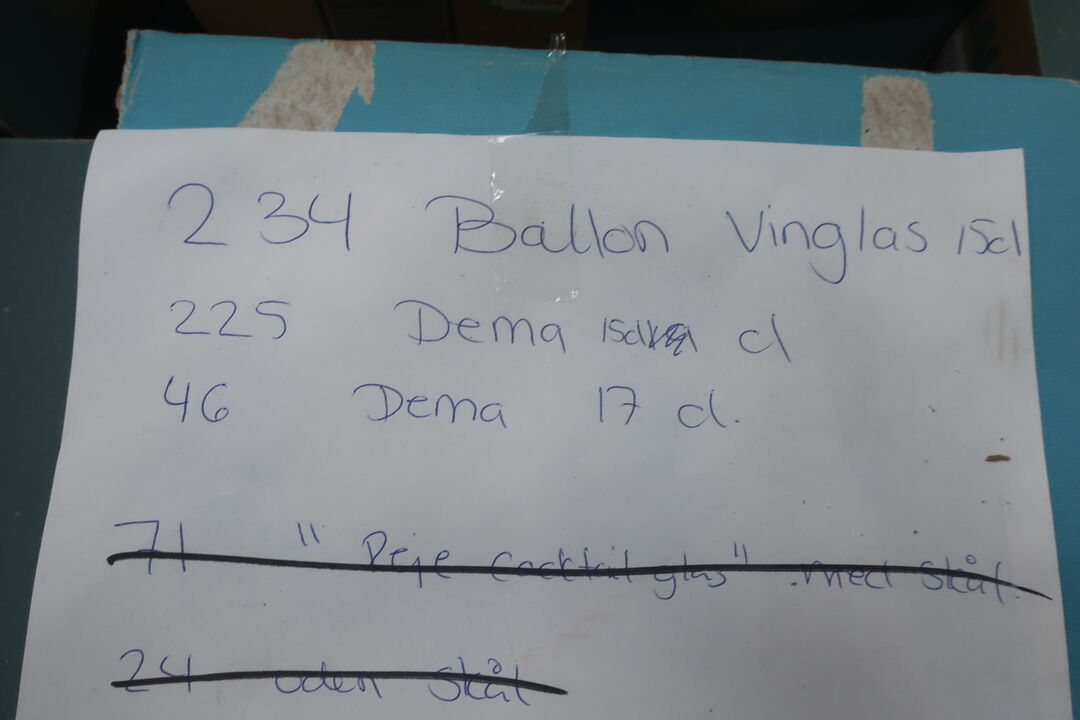 234 Ballon Vinglas 15cl
225 Dema 15cl cl
46 Dema 17 cl.
71 " Reje Cocktail glas" med skål.
24 uden skål